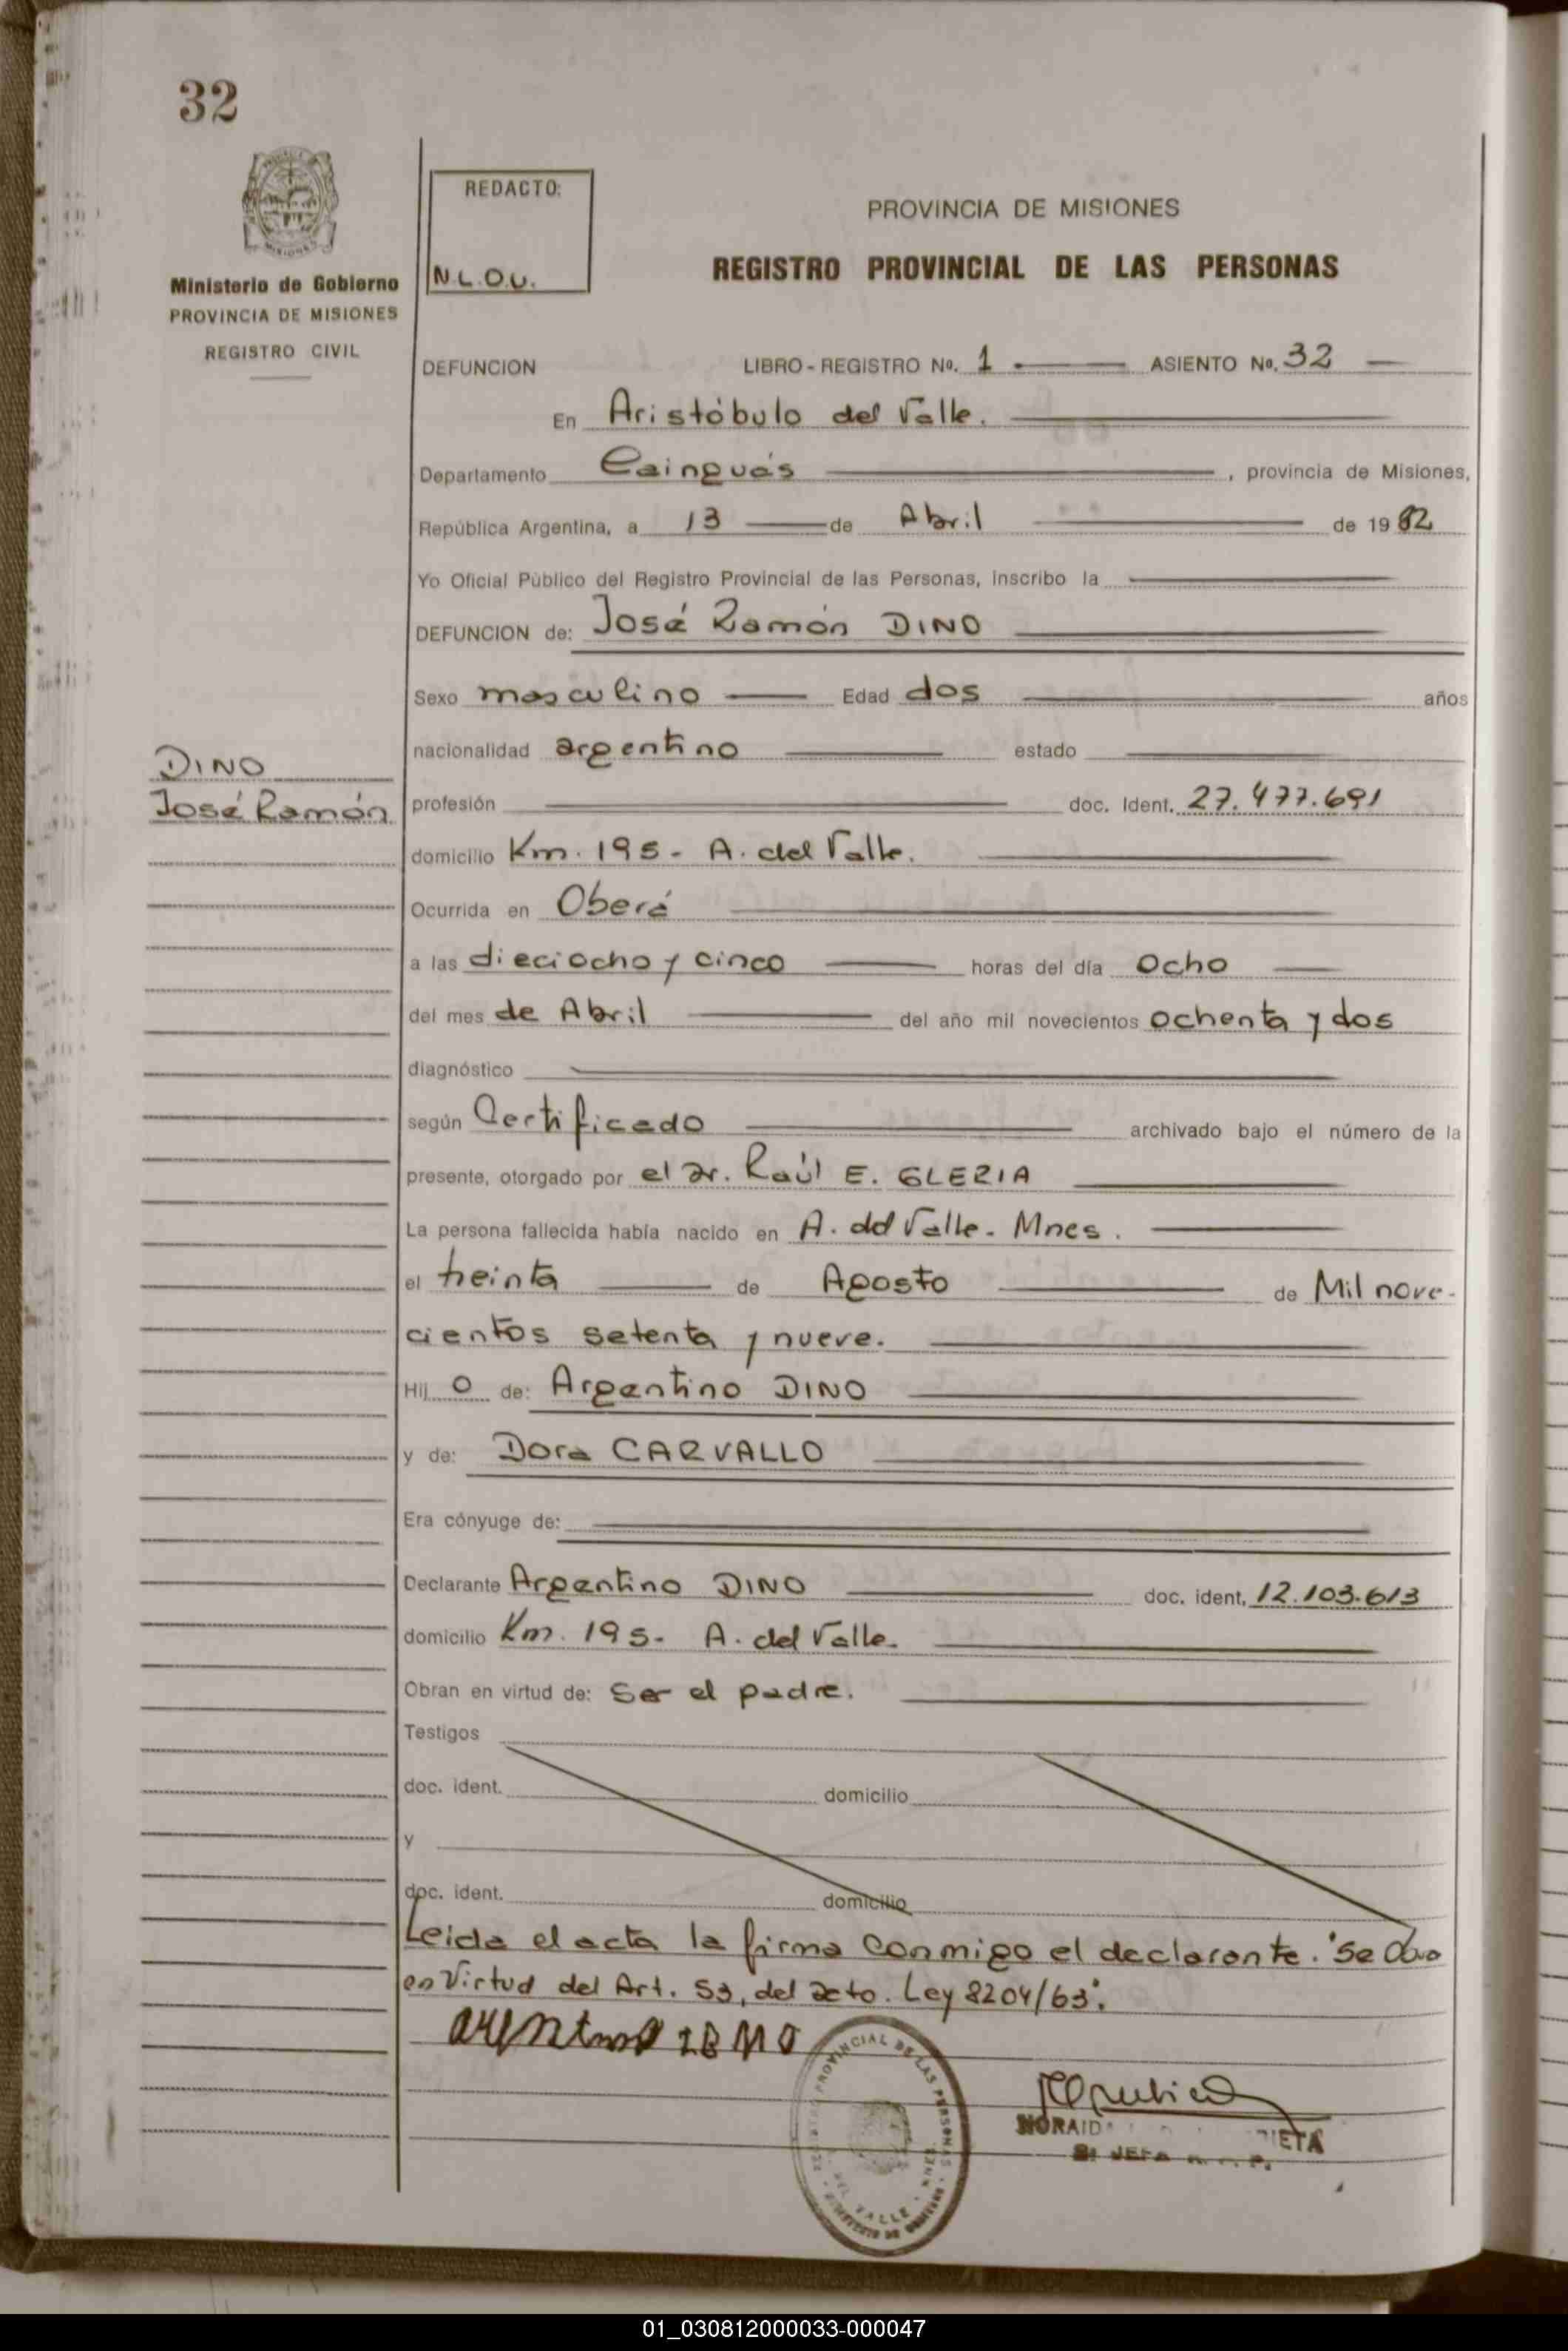 32
Ministerio de Gobierno
PROVINCIA DE MISIONES
REGISTRO CIVIL
REDACTO:
N.L.O.U.
PROVINCIA DE MISIONES
REGISTRO PROVINCIAL DE LAS PERSONAS
DEFUNCION LIBRO - REGISTRO No. 1 ASIENTO No. 32
En Aristóbulo del Valle.
Departamento Cainguás, provincia de Misiones,
República Argentina, a 13 de Abril de 1982
Yo Oficial Público del Registro Provincial de las Personas, inscribo la
DEFUNCION de: José Ramón DINO
Sexo masculino Edad dos años
nacionalidad argentino estado
DINO
José Ramón
profesión doc. Ident. 27.477.691
domicilio Km. 195 - A. del Valle.
Ocurrida en Oberá
a las dieciocho y cinco horas del día Ocho
del mes de Abril del año mil novecientos ochenta y dos
diagnóstico
según Certificado archivado bajo el número de la
presente, otorgado por el Dr. Raúl E. GLERIA
La persona fallecida había nacido en A. del Valle - Mnes.
el treinta de Agosto de Mil nove-
cientos setenta y nueve.
Hij o de: Argentino DINO
y de: Dora CARVALLO
Era cónyuge de:
Declarante Argentino DINO doc. ident. 12.103.613
domicilio Km. 195- A. del Valle.
Obran en virtud de: Ser el padre.
Testigos
doc. ident. domicilio
y
doc. ident. domicilio
Leida el acta la firma conmigo el declarante. "Se
en Virtud del Art. 53, del Dcto. Ley 8204/63".
REGISTRO PROVINCIAL DE LAS PERSONAS
DEL VALLE - MNES.
MINISTERIO DE GOBIERNO
JEFA
01_030812000033-000047